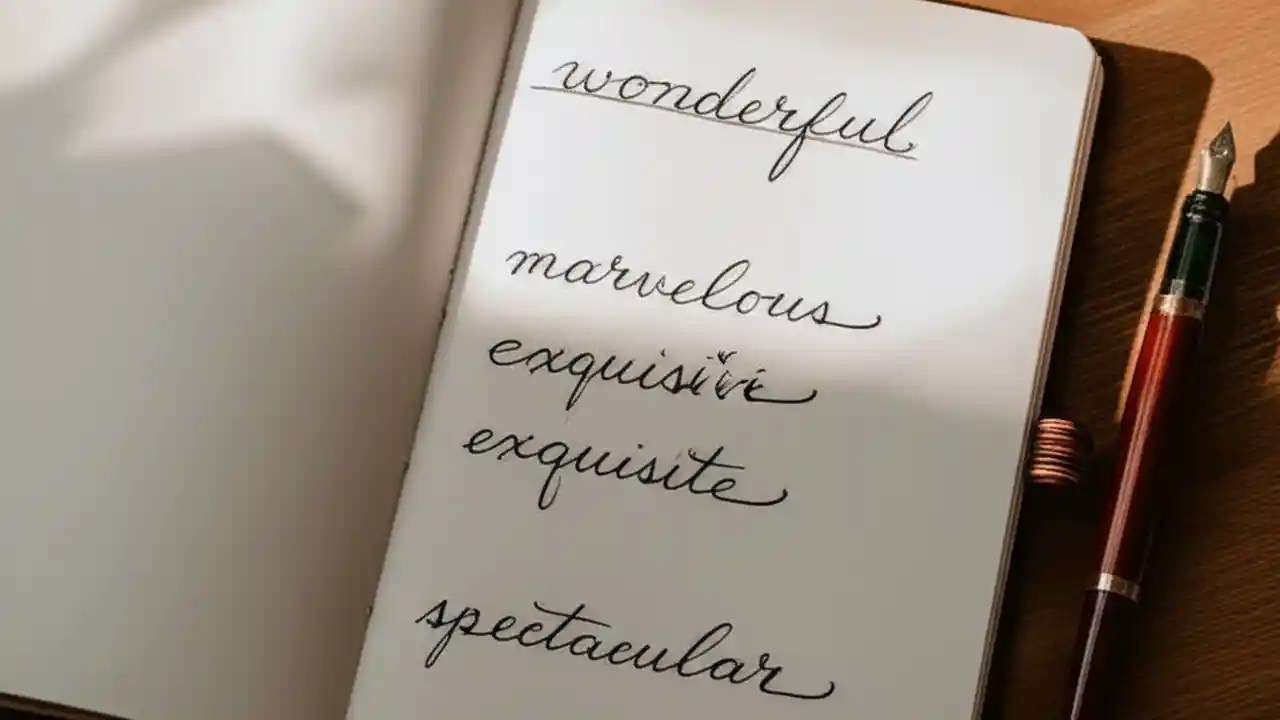 wonderful
marvelous
exquisite
spectacular